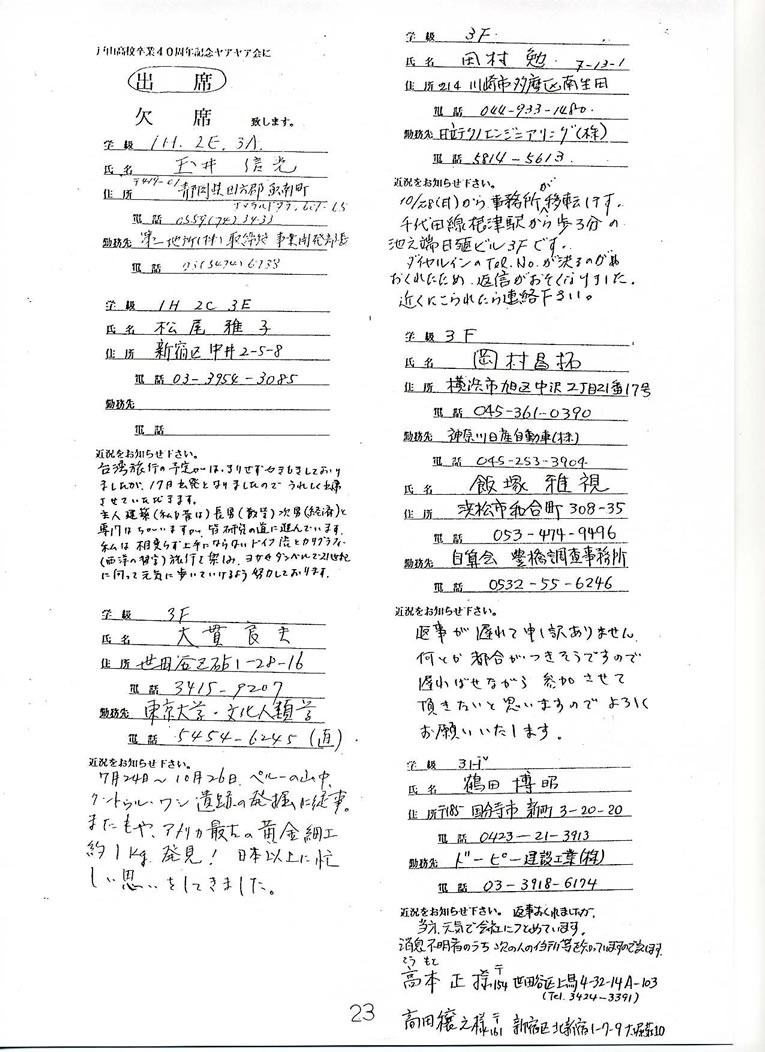 戸山高校卒業40周年記念ヤアヤア会に
出席
欠席 致します。
学級 1H. 2E. 3A.
氏名 玉井 信光
住所 〒419-01 静岡県田方郡函南町
電話 0559(74)3433
勤務先 第一地所(株)取締役 事業開発部長
電話
学級 1H 2C 3E
氏名 松尾 雅子
住所 新宿区中井2-5-8
電話 03-3954-3085
勤務先
電話
近況をお知らせ下さい。
台湾旅行の予定がはっきりせずやきもきしており
ましたが、17日出発となりましたので うれしく出席
させていただきます。
主人建築(私も昔は)長男(数学)次男(経済)と
専門はちがいますが、皆研究の道に進んでいます。
私は相変らず上手にならないドイツ語とカリグラフィー
(西洋の習字)旅行を楽しみ、ヨガとダンベルで21世紀
に向って元気に歩いていけるよう努力しております。
学級 3F
氏名 大貫良夫
住所 世田谷区砧1-28-16
電話 3415-9207
勤務先 東京大学・文化人類学
電話 5454-6245(直)
近況をお知らせ下さい。
7月24日～10月26日、ペルーの山中、
クントゥル・ワシ遺跡の発掘に従事。
またもや、アメリカ最古の黄金細工
約1kg 発見! 日本以上に忙
しい思いをしてきました。
学級 3F
氏名 田村 勉
7-13-1
住所 214 川崎市多摩区南生田
電話 044-933-1480
勤務先 日立テクノエンジニアリング(株)
電話 5814-5613
近況をお知らせ下さい。
10/28(月)から事務所が移転します。
千代田線根津駅から歩3分の
池之端日殖ビル3Fです。
ダイヤルインのTel.No.が決るのが
おくれたため、返信がおそくなりました。
近くにこられたら連絡下さい。
学級 3F
氏名 岡村昌拓
住所 横浜市旭区中沢2丁目21番17号
電話 045-361-0390
勤務先 神奈川日産自動車(株)
電話 045-253-3904
氏名 飯塚雅視
住所 浜松市和合町308-35
電話 053-474-9496
勤務先 自算会 豊橋調査事務所
電話 0532-55-6246
近況をお知らせ下さい。
返事が遅れて申し訳ありません。
何とか都合がつきそうですので
遅ればせながら 参加させて
頂きたいと思いますのでよろしく
お願いいたします。
学級
氏名 鶴田博昭
住所 〒185 国分寺市新町3-20-20
電話 0423-21-3913
勤務先 ドーピー建設工業(株)
電話 03-3918-6174
近況をお知らせ下さい。 返事おくれましたが、
当方、元気で会社につとめています。
消息不明者のうち 次の人の住所等を知っていますので記します。
こう もと
高本 正様 〒154 世田谷区上馬4-32-14 A-103
(Tel. 3424-3391)
高田穣之様 〒161 新宿区北新宿1-7-9
23